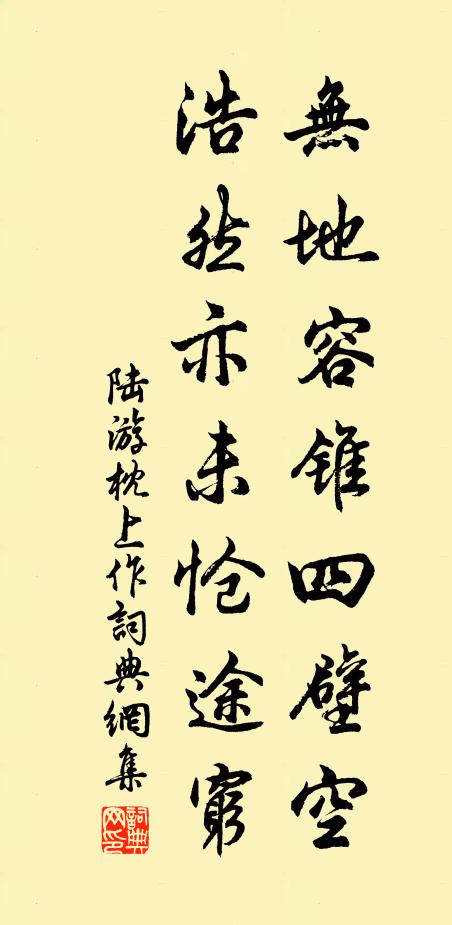 無地容錐四壁空
浩然亦未怆途窮
陆游枕上作詞典網集
詞典网印